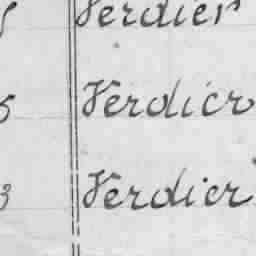 Verdier
5 Verdier
3 Verdier